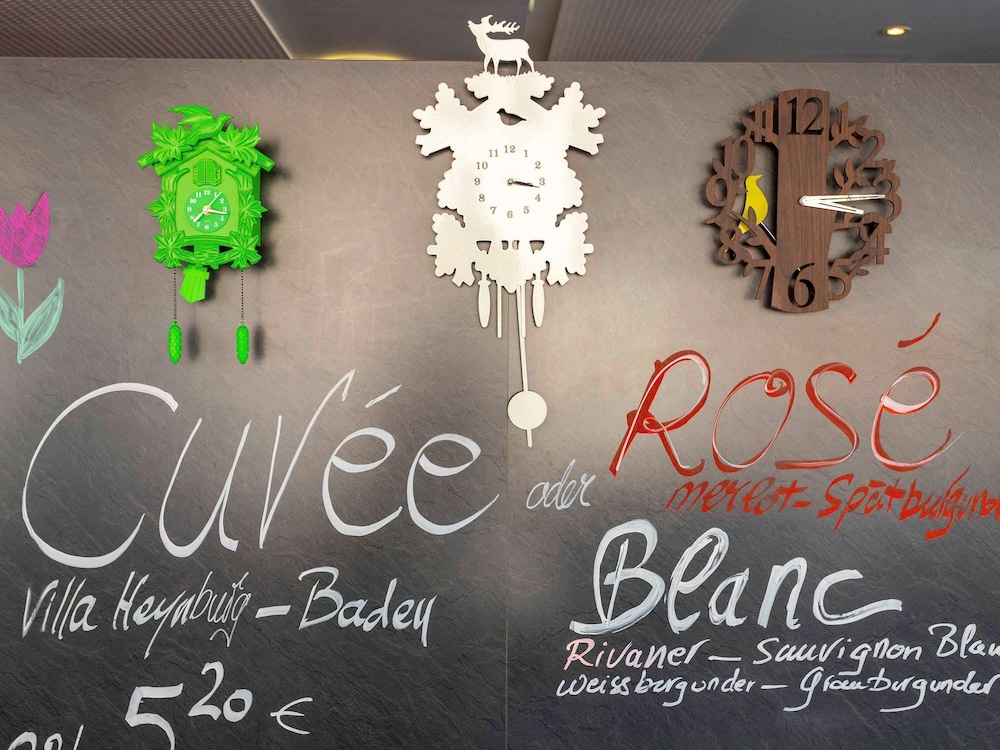 12 1 2 3 4 5 6 7 8 9 10 11
12 1 2 3 4 5 6 7 8 9 10 11
12 1 2 3 4 5 6 7 8 9 10 11
Cuvée
oder
Rosé
merlot-Spätburgunde
Villa Heynburg – Baden
Blanc
Rivaner – Sauvignon Blan
Weissburgunder – Grauburgunder
5 20 €